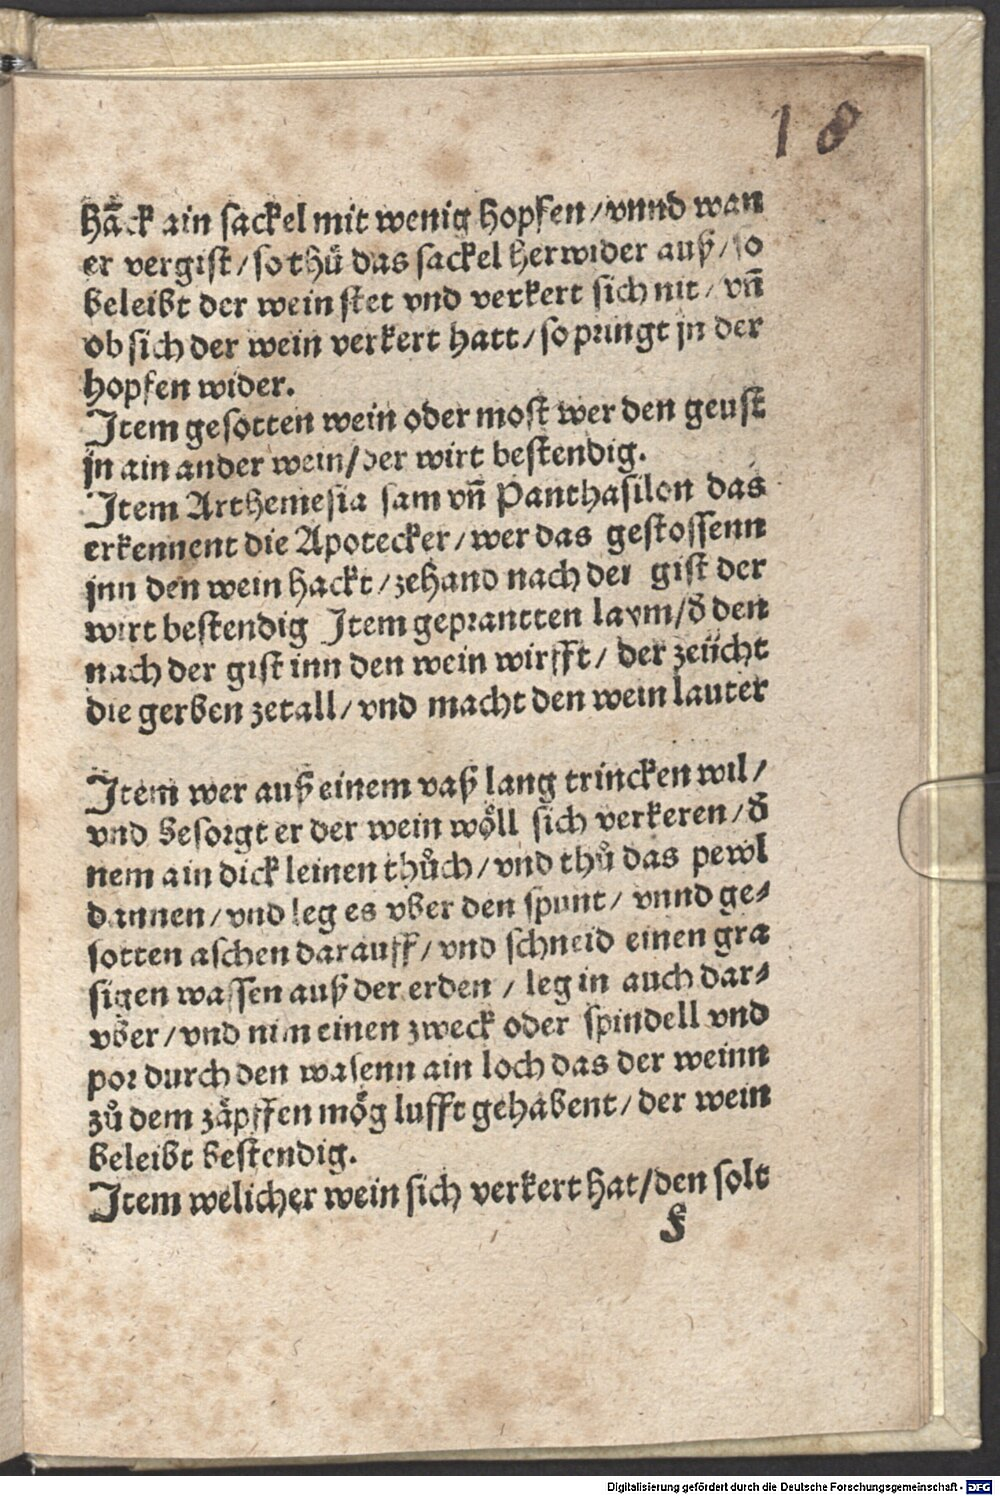 18
hãck ain sackel mit wenig hopfen / vnnd wan
er vergist / so thuͦ das sackel herwider auß / so
beleibt der wein stet vnd verkert sich nit / vñ
ob sich der wein verkert hatt / so pringt jn der
hopfen wider.
Item gesotten wein oder most wer den geust
jn ain ander wein / der wirt bestendig.
Item Arthemesia sam vñ Panthasilon das
erkennent die Apotecker / wer das gestossenn
jnn den wein hackt / zehand nach der gist der
wirt bestendig Item geprantten laym / d̄ den
nach der gist inn den wein wirfft / der zeücht
die gerben zetall / vnd macht den wein lauter
Item wer auß einem vaß lang trincken wil /
vnd besorgt er der wein woͤll sich verkeren / d̄
nem ain dick leinen thuͦch / vnd thuͦ das pewl
dannen / vnd leg es vber den spunt / vnnd ge-
sotten aschen darauff / vnd schneid einen gra
sigen wassen auß der erden / leg in auch dar-
vber / vnd nim einen zweck oder spindell vnd
por durch den wasenn ain loch das der weinn
zuͦ dem zaͤpffen moͤg lufft gehabent / der wein
beleibt bestendig.
Item welicher wein sich verkert hat / den solt
f
Digitalisierung gefördert durch die Deutsche Forschungsgemeinschaft - DFG